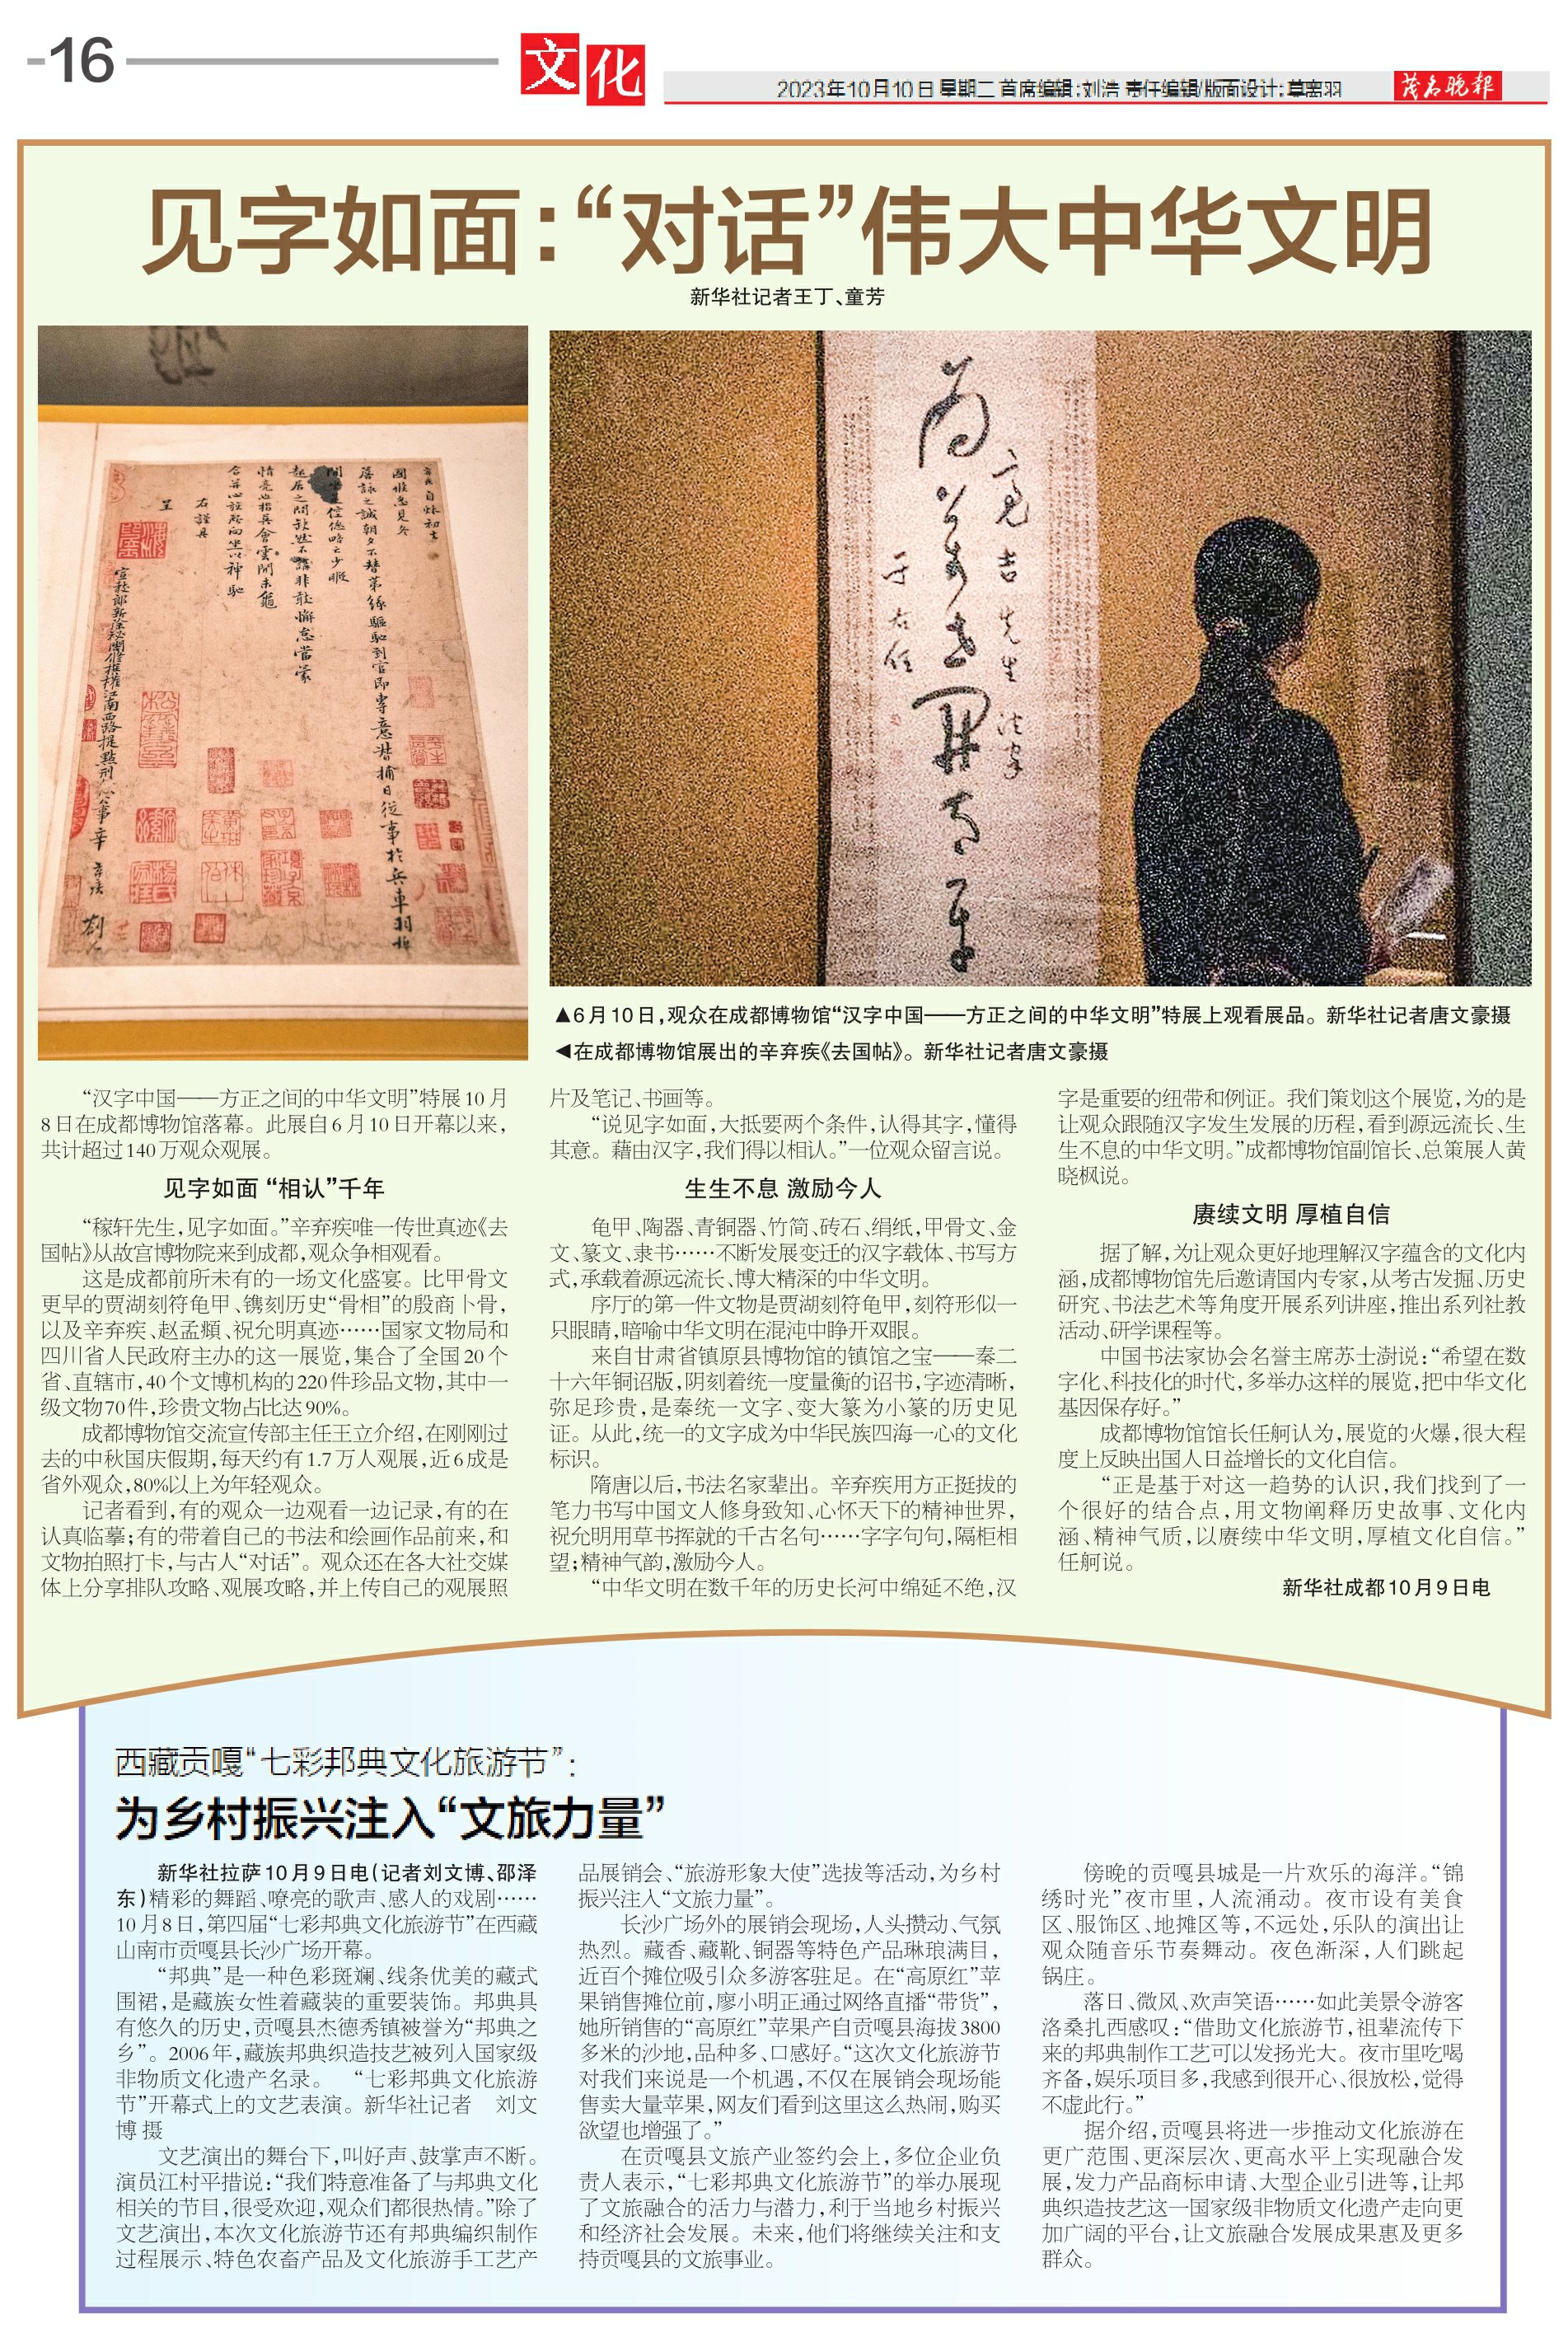 16
文化
2023年10月10日 星期二 首席编辑:刘浩 责任编辑/版面设计:莫寓羽
茂名晚报
见字如面:“对话”伟大中华文明
新华社记者王丁、童芳
为万世开太平
于右任
▲6月10日,观众在成都博物馆“汉字中国——方正之间的中华文明”特展上观看展品。新华社记者唐文豪摄
◀在成都博物馆展出的辛弃疾《去国帖》。新华社记者唐文豪摄
“汉字中国——方正之间的中华文明”特展10月
8日在成都博物馆落幕。此展自6月10日开幕以来,
共计超过140万观众观展。
见字如面 “相认”千年
“稼轩先生,见字如面。”辛弃疾唯一传世真迹《去
国帖》从故宫博物院来到成都,观众争相观看。
这是成都前所未有的一场文化盛宴。比甲骨文
更早的贾湖刻符龟甲、镌刻历史“骨相”的殷商卜骨,
以及辛弃疾、赵孟頫、祝允明真迹……国家文物局和
四川省人民政府主办的这一展览,集合了全国20个
省、直辖市,40个文博机构的220件珍品文物,其中一
级文物70件,珍贵文物占比达90%。
成都博物馆交流宣传部主任王立介绍,在刚刚过
去的中秋国庆假期,每天约有1.7万人观展,近6成是
省外观众,80%以上为年轻观众。
记者看到,有的观众一边观看一边记录,有的在
认真临摹;有的带着自己的书法和绘画作品前来,和
文物拍照打卡,与古人“对话”。观众还在各大社交媒
体上分享排队攻略、观展攻略,并上传自己的观展照
片及笔记、书画等。
“说见字如面,大抵要两个条件,认得其字,懂得
其意。藉由汉字,我们得以相认。”一位观众留言说。
生生不息 激励今人
龟甲、陶器、青铜器、竹简、砖石、绢纸,甲骨文、金
文、篆文、隶书……不断发展变迁的汉字载体、书写方
式,承载着源远流长、博大精深的中华文明。
序厅的第一件文物是贾湖刻符龟甲,刻符形似一
只眼睛,暗喻中华文明在混沌中睁开双眼。
来自甘肃省镇原县博物馆的镇馆之宝——秦二
十六年铜诏版,阴刻着统一度量衡的诏书,字迹清晰,
弥足珍贵,是秦统一文字、变大篆为小篆的历史见
证。从此,统一的文字成为中华民族四海一心的文化
标识。
隋唐以后,书法名家辈出。辛弃疾用方正挺拔的
笔力书写中国文人修身致知、心怀天下的精神世界,
祝允明用草书挥就的千古名句……字字句句,隔柜相
望;精神气韵,激励今人。
“中华文明在数千年的历史长河中绵延不绝,汉
字是重要的纽带和例证。我们策划这个展览,为的是
让观众跟随汉字发生发展的历程,看到源远流长、生
生不息的中华文明。”成都博物馆副馆长、总策展人黄
晓枫说。
赓续文明 厚植自信
据了解,为让观众更好地理解汉字蕴含的文化内
涵,成都博物馆先后邀请国内专家,从考古发掘、历史
研究、书法艺术等角度开展系列讲座,推出系列社教
活动、研学课程等。
中国书法家协会名誉主席苏士澍说:“希望在数
字化、科技化的时代,多举办这样的展览,把中华文化
基因保存好。”
成都博物馆馆长任舸认为,展览的火爆,很大程
度上反映出国人日益增长的文化自信。
“正是基于对这一趋势的认识,我们找到了一
个很好的结合点,用文物阐释历史故事、文化内
涵、精神气质,以赓续中华文明,厚植文化自信。”
任舸说。
新华社成都10月9日电
西藏贡嘎“七彩邦典文化旅游节”:
为乡村振兴注入“文旅力量”
新华社拉萨10月9日电(记者刘文博、邵泽
东)精彩的舞蹈、嘹亮的歌声、感人的戏剧……
10月8日,第四届“七彩邦典文化旅游节”在西藏
山南市贡嘎县长沙广场开幕。
“邦典”是一种色彩斑斓、线条优美的藏式
围裙,是藏族女性着藏装的重要装饰。邦典具
有悠久的历史,贡嘎县杰德秀镇被誉为“邦典之
乡”。2006年,藏族邦典织造技艺被列入国家级
非物质文化遗产名录。 “七彩邦典文化旅游
节”开幕式上的文艺表演。新华社记者 刘文
博 摄
文艺演出的舞台下,叫好声、鼓掌声不断。
演员江村平措说:“我们特意准备了与邦典文化
相关的节目,很受欢迎,观众们都很热情。”除了
文艺演出,本次文化旅游节还有邦典编织制作
过程展示、特色农畜产品及文化旅游手工艺产
品展销会、“旅游形象大使”选拔等活动,为乡村
振兴注入“文旅力量”。
长沙广场外的展销会现场,人头攒动、气氛
热烈。藏香、藏靴、铜器等特色产品琳琅满目,
近百个摊位吸引众多游客驻足。在“高原红”苹
果销售摊位前,廖小明正通过网络直播“带货”,
她所销售的“高原红”苹果产自贡嘎县海拔3800
多米的沙地,品种多、口感好。“这次文化旅游节
对我们来说是一个机遇,不仅在展销会现场能
售卖大量苹果,网友们看到这里这么热闹,购买
欲望也增强了。”
在贡嘎县文旅产业签约会上,多位企业负
责人表示,“七彩邦典文化旅游节”的举办展现
了文旅融合的活力与潜力,利于当地乡村振兴
和经济社会发展。未来,他们将继续关注和支
持贡嘎县的文旅事业。
傍晚的贡嘎县城是一片欢乐的海洋。“锦
绣时光”夜市里,人流涌动。夜市设有美食
区、服饰区、地摊区等,不远处,乐队的演出让
观众随音乐节奏舞动。夜色渐深,人们跳起
锅庄。
落日、微风、欢声笑语……如此美景令游客
洛桑扎西感叹:“借助文化旅游节,祖辈流传下
来的邦典制作工艺可以发扬光大。夜市里吃喝
齐备,娱乐项目多,我感到很开心、很放松,觉得
不虚此行。”
据介绍,贡嘎县将进一步推动文化旅游在
更广范围、更深层次、更高水平上实现融合发
展,发力产品商标申请、大型企业引进等,让邦
典织造技艺这一国家级非物质文化遗产走向更
加广阔的平台,让文旅融合发展成果惠及更多
群众。